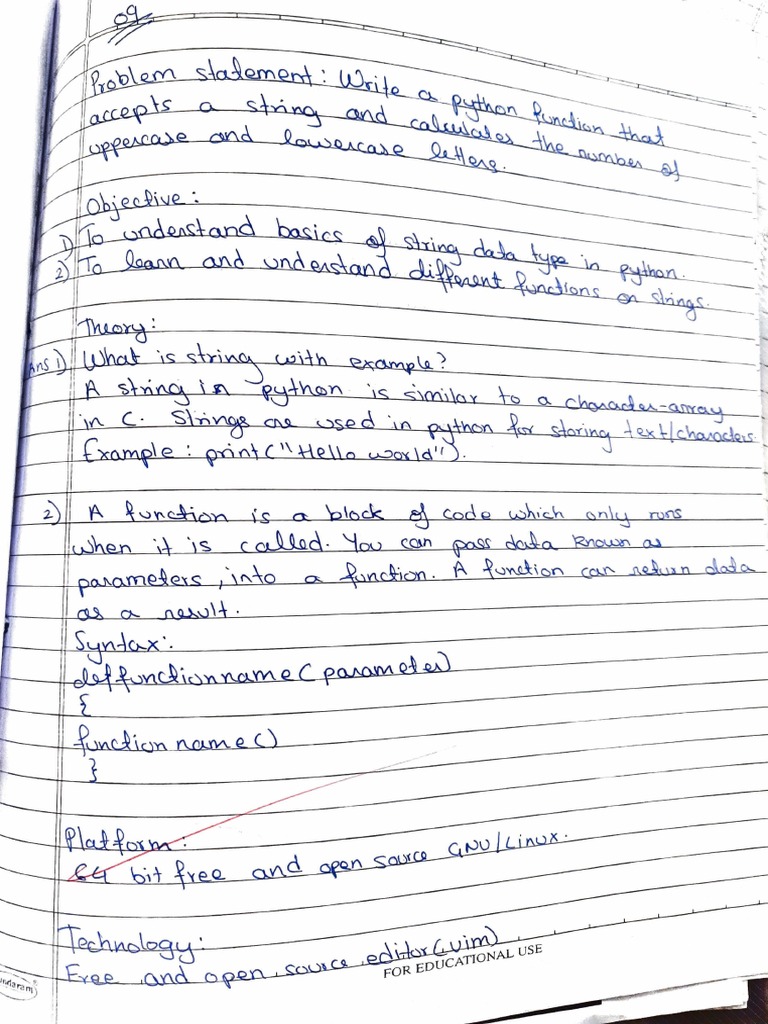 09
Problem statement: Write a python function that
accepts a string and calculates the number of
uppercase and lowercase letters.
Objective:
1) To understand basics of string data type in python.
2) To learn and understand different functions on strings.
Theory:
Ans 1) What is string with example?
A string in python is similar to a character-array
in C. Strings are used in python for storing text/characters
Example: print("Hello world").
2) A function is a block of code which only runs
when it is called. You can pass data known as
parameters, into a function. A function can return data
as a result.
Syntax:
def functionname(parameter)
{
function name()
}
Platform:
64 bit free and open source GNU/Linux.
Technology:
Free and open source editor(vim)
FOR EDUCATIONAL USE